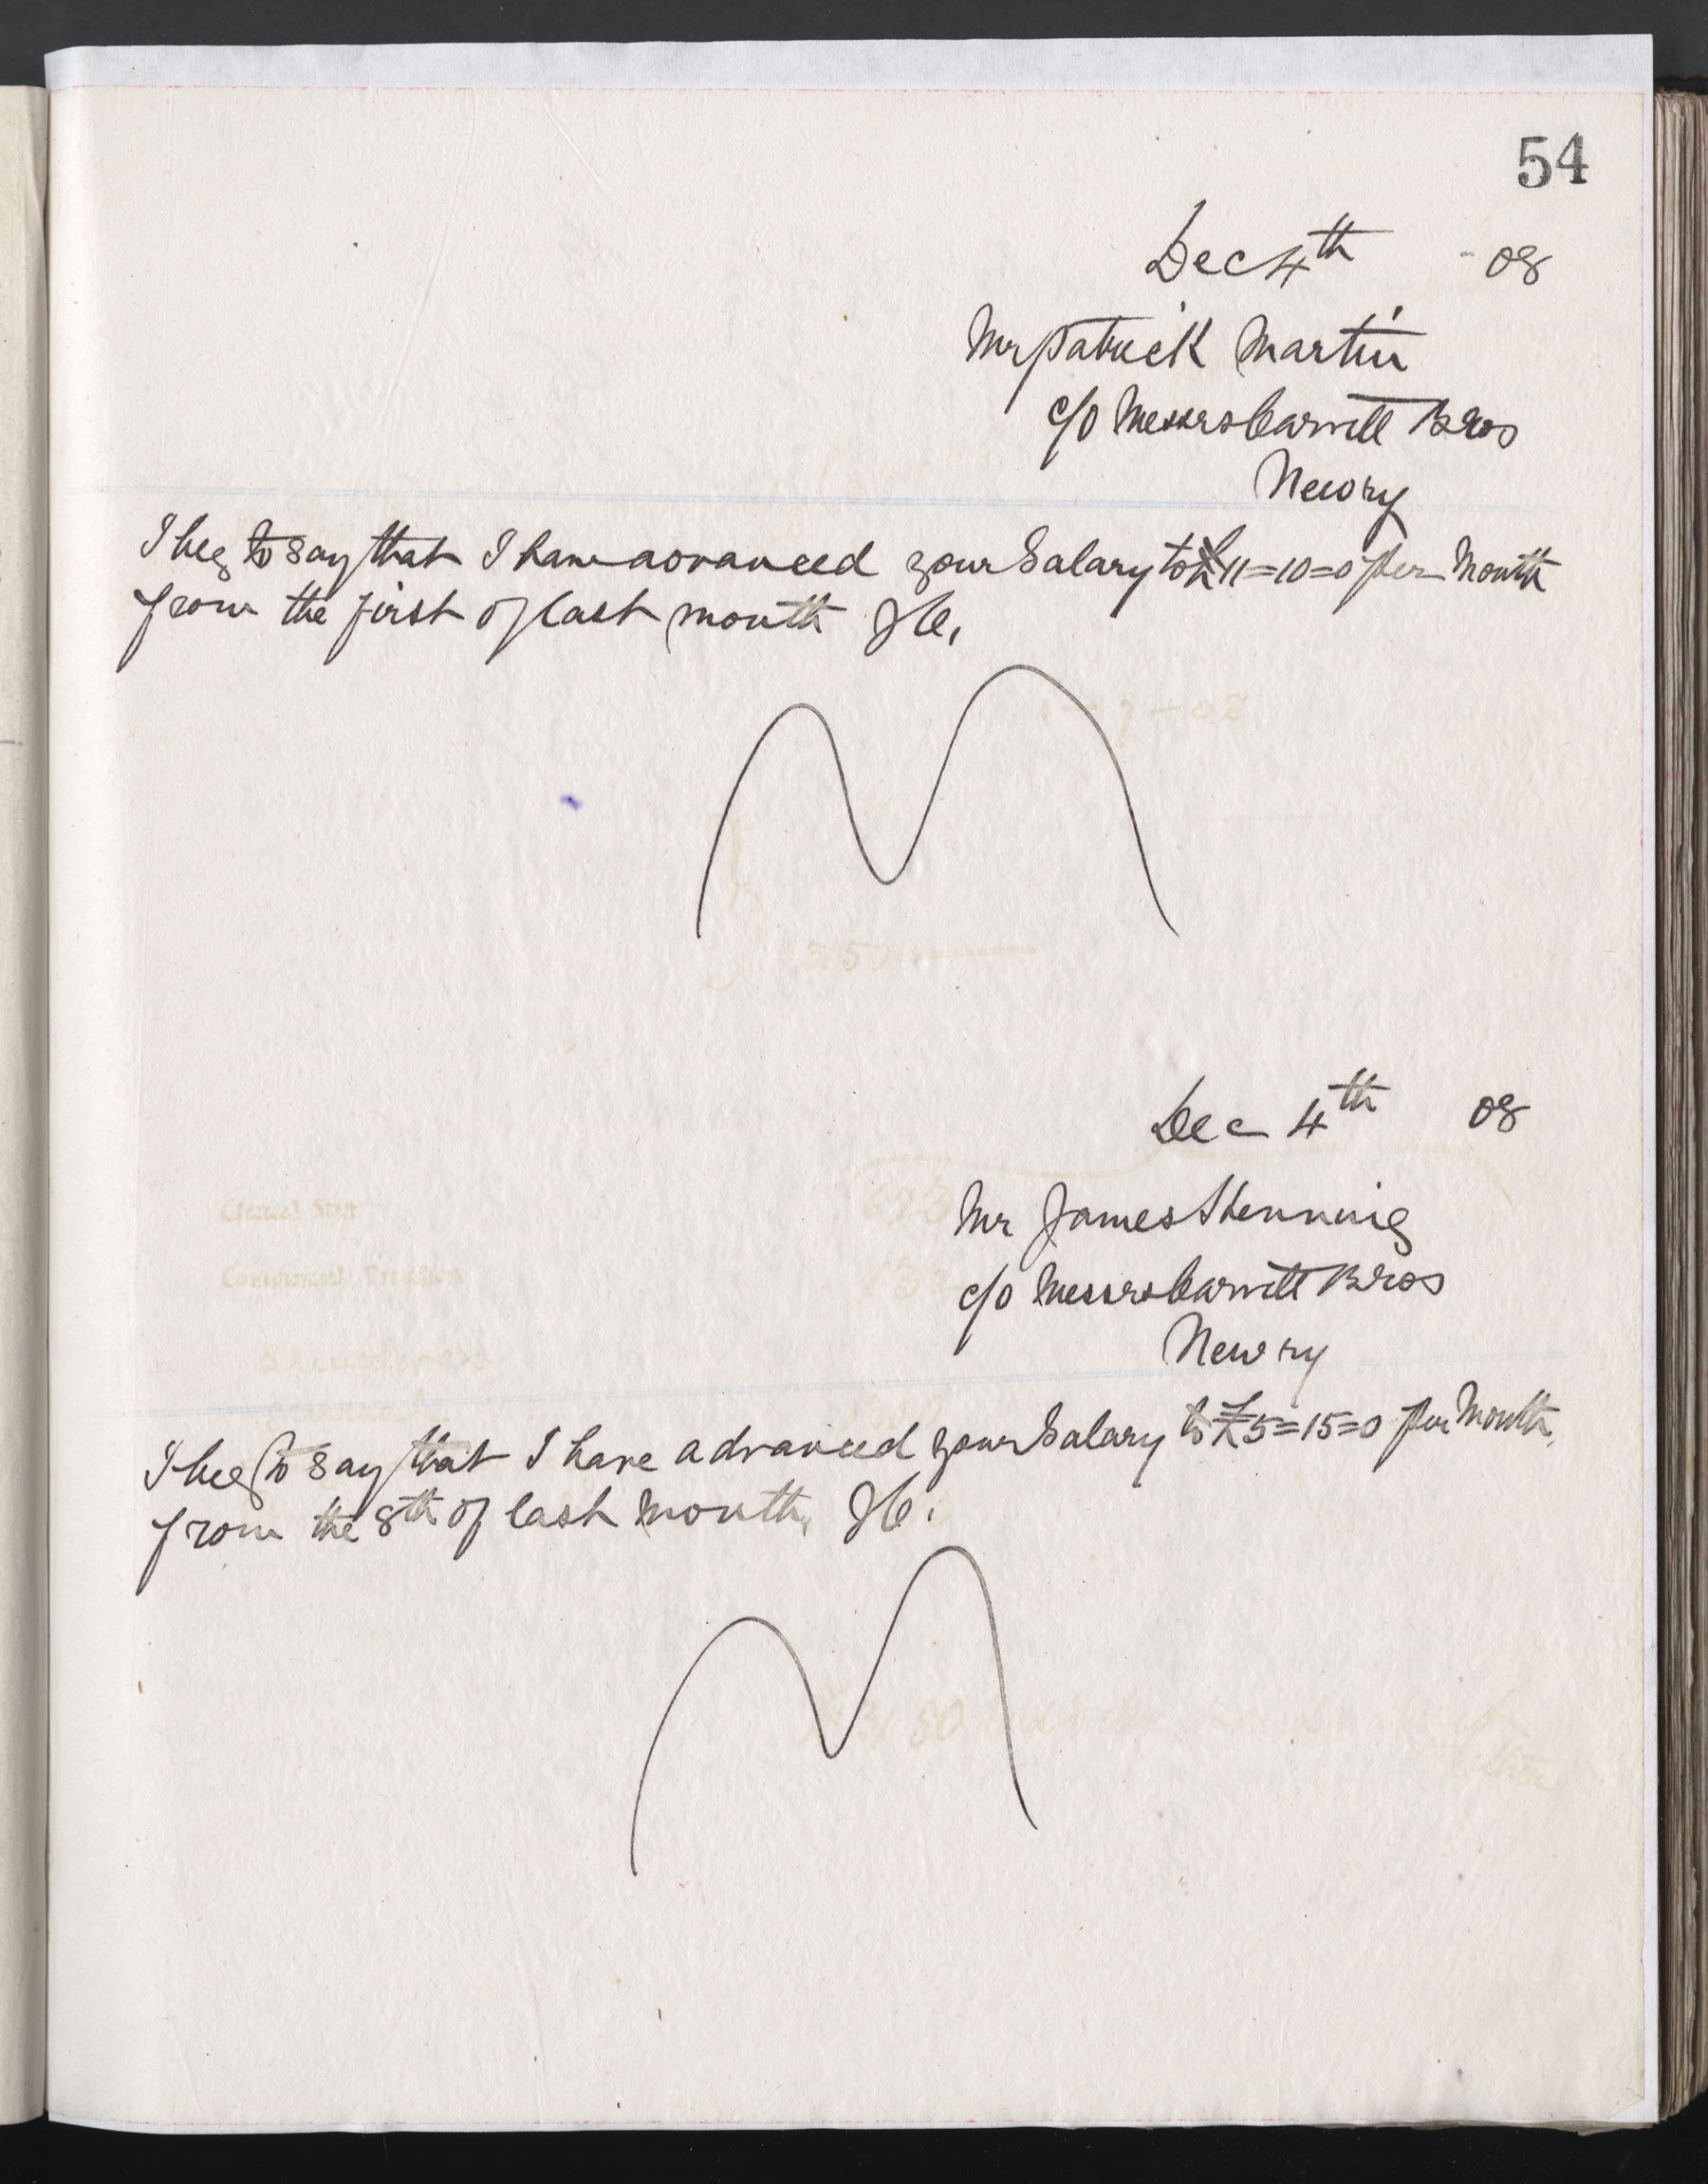 54
Dec 4th - 08
Mr Patrick Martin
c/o Messrs Carvill Bros
Newry
I beg to say that I have advanced your Salary to £11=10=0 per Month
from the first of last month
Dec 4th 08
Mr James Shenning
c/o Messrs Carvill Bros
Newry
I beg to say that I have advanced your Salary to £5=15=0 per Month
from the 8th of last Month,